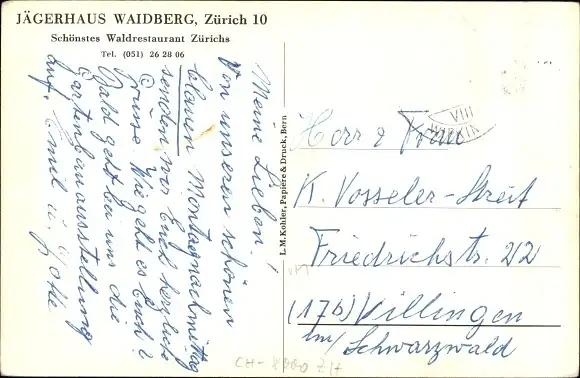 JÄGERHAUS WAIDBERG, Zürich 10
Schönstes Waldrestaurant Zürichs
Tel. (051) 26 28 06
Meine Lieben!
Von unserem schönen
blauen Montagnachmittag
senden wir Euch herzliche
Grüsse Wie geht es Euch?
Bald geht bei uns die
Gartenbauausstellung
auf. Emil u.
L.M. Kohler, Papiére & Druck, Bern
VIII
WIPKIN
Herr & Frau
K. Vosseler-Streit
Friedrichstr. 22
(17b) Villingen
im/Schwarzwald
CH-8000 ZH